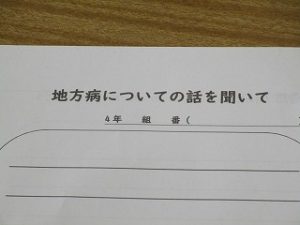 地方病についての話を聞いて
4年　組　番（